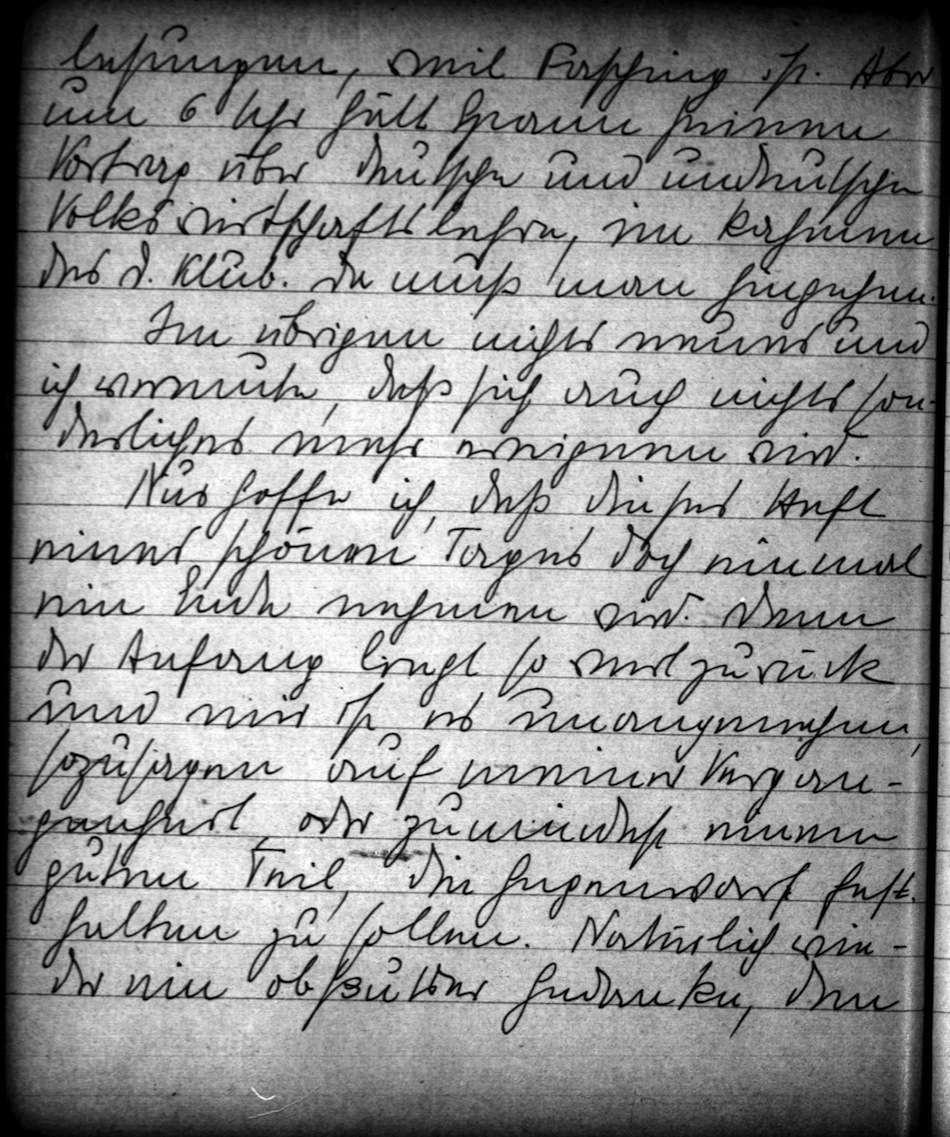 lesungen, weil Fasching ist. Aber
um 6 Uhr hält Spann seinen
Vortrag über deutsche und undeutsche
Volkswirtschaftslehre, im Rahmen
des d. Klub. Da muß man hingehen.
Im übrigen nichts neues und
ich vermute, daß sich auch nichts son-
derliches mehr ereignen wird.
Nur hoffe ich, daß dieses Heft
eines schönen Tages doch einmal
ein Ende nehmen wird. Denn
der Anfang liegt so weit zurück
und mir ist es unangenehm,
sozusagen auf meiner Vergan-
genheit, oder zumindest einem
guten Teil, die Gegenwart fest-
halten zu sollen. Natürlich wie-
der ein obskurer Gedanke, denn